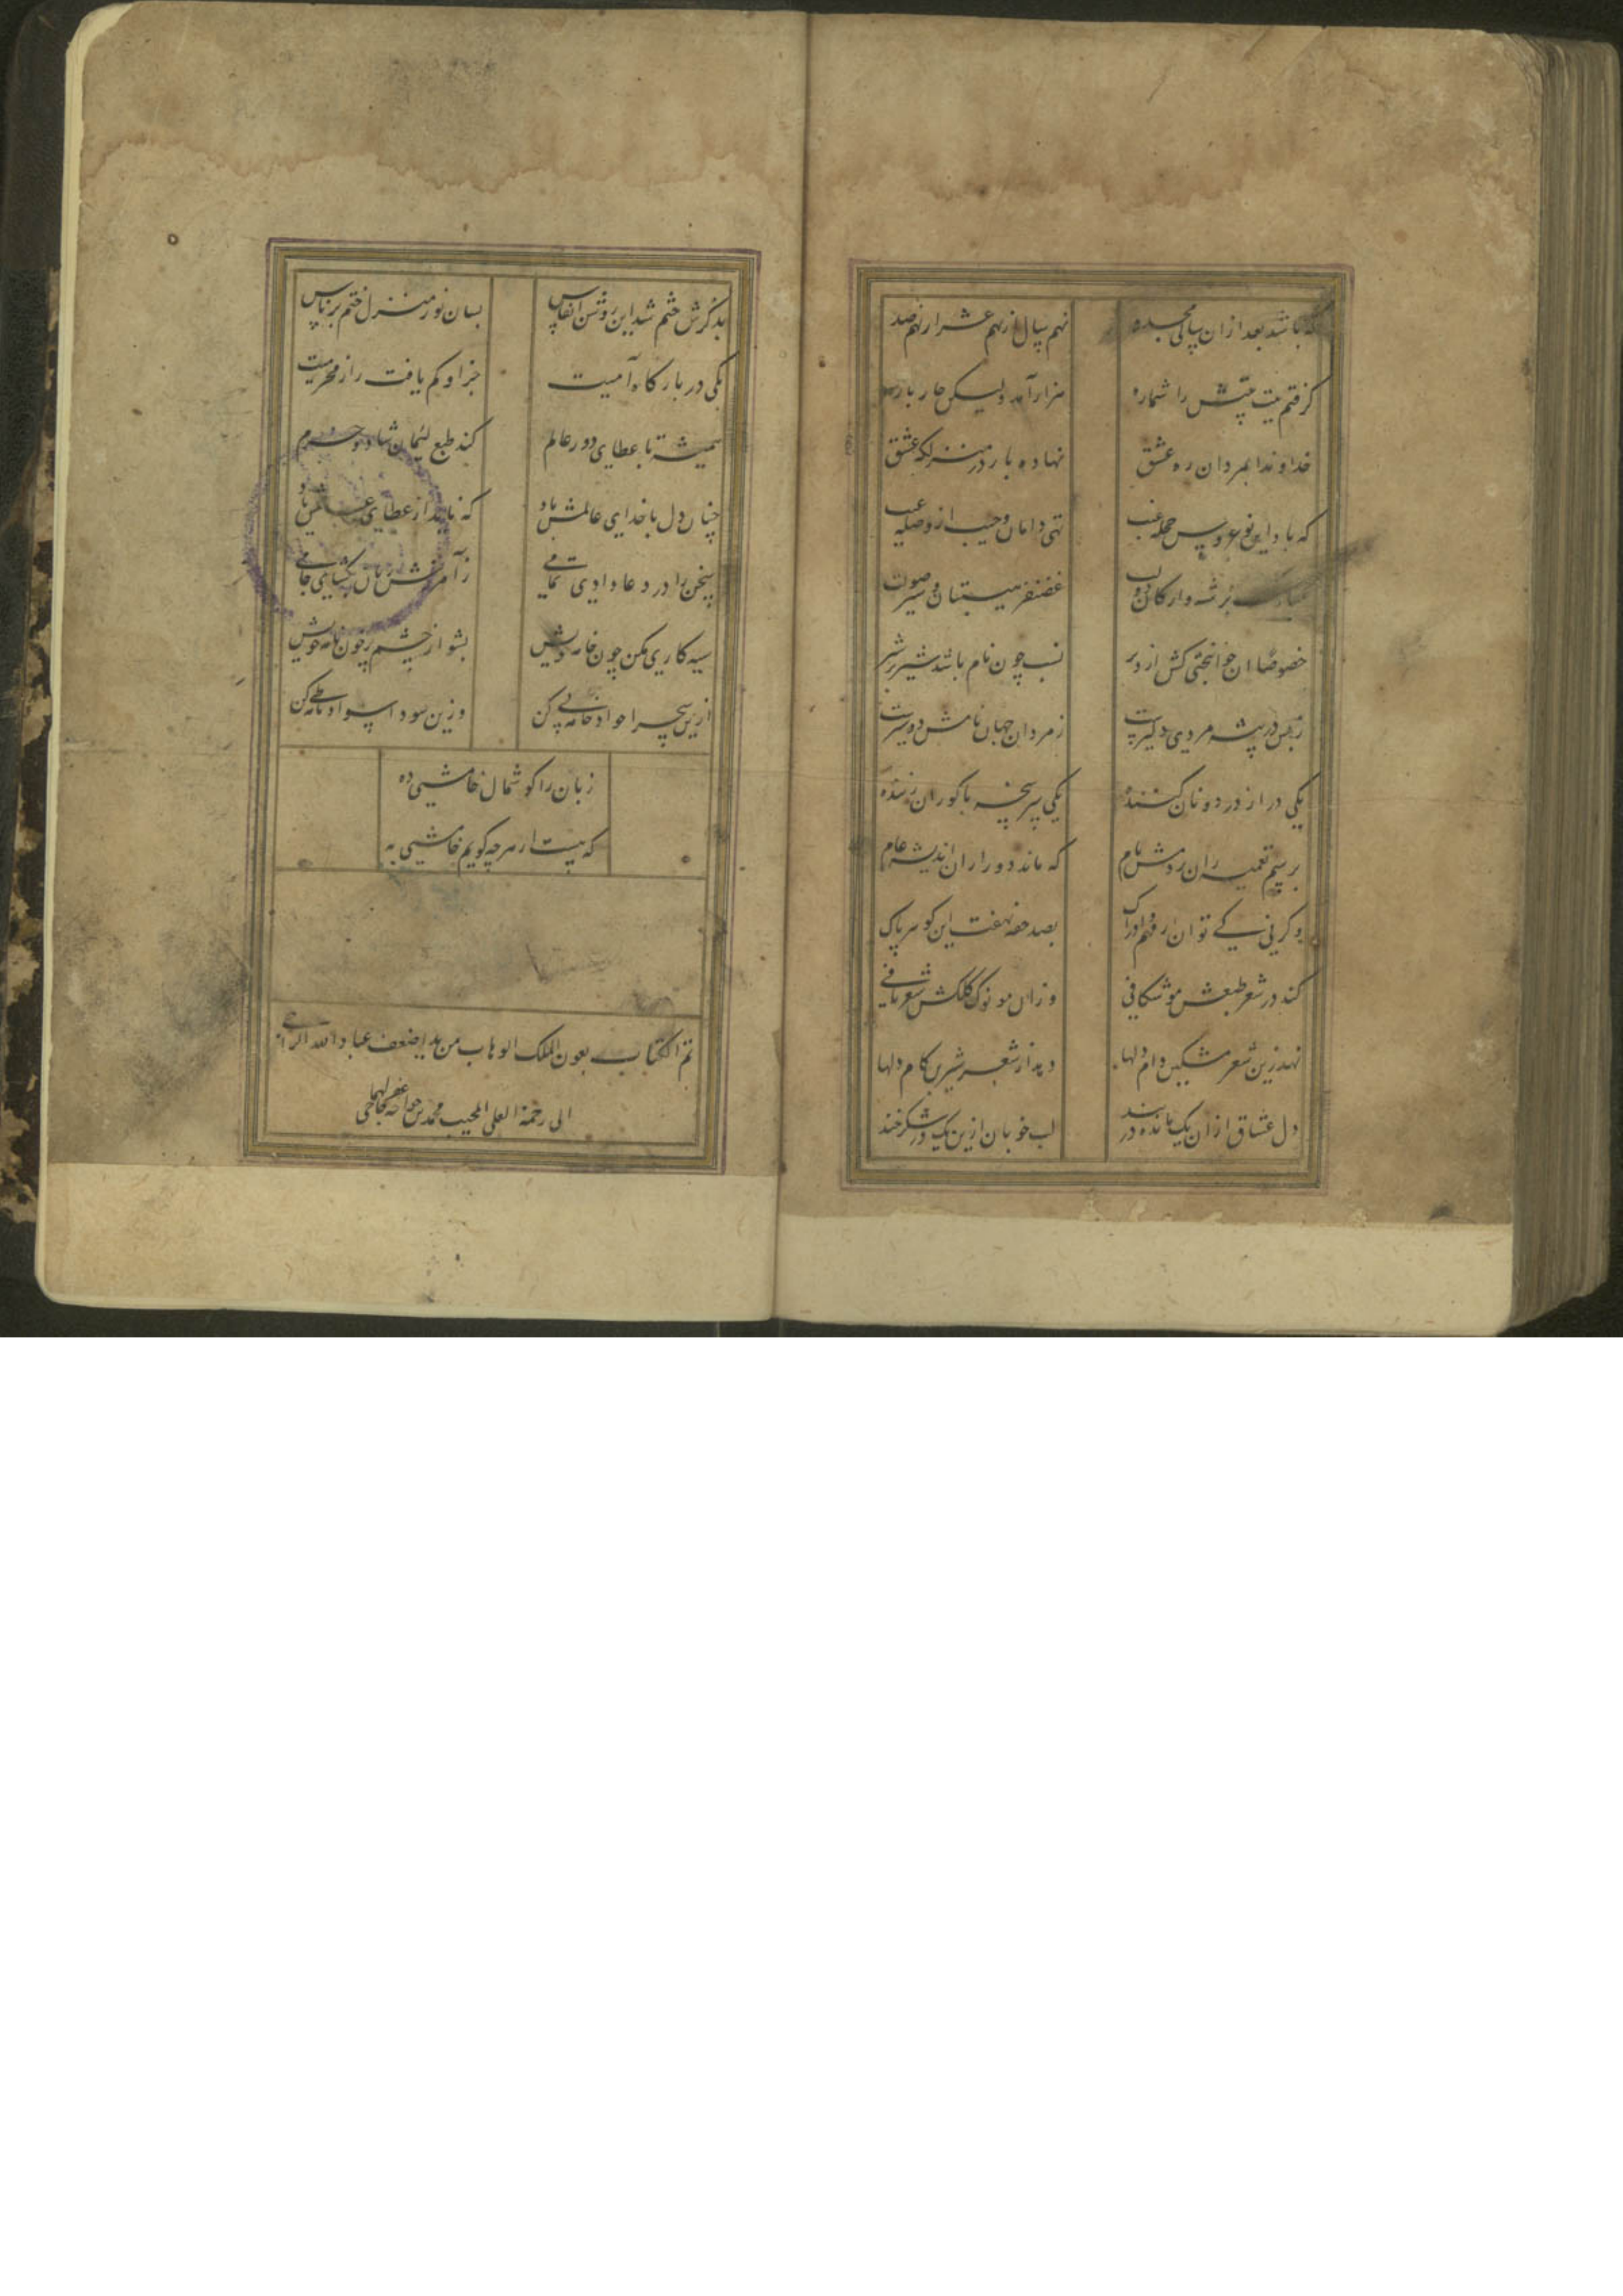 که باشد بعد ازان سالی مجدد نهم سال از نهم عشر از نهم صد
گرفتم بیت بیتش را شماره هزار آمد ولیکن چار باره
خداوندا بمردان ره عشق نهاده بار در منزلگه عشق
که باد این نو عروس حجله غیب تهی دامان و جیب از وصله عیب
بر شه و ارکان دولت غضنفر هیبتان و شیر صولت
خصوصا ان جوانبختی کش از دیر نسب چون نام باشد شیر بر شیر
ز بس در بیشه مردی دلیرست ز مردان جهان نامش دو شیرست
یکی در از در دونان کننده یکی سرپنجه با کوران زننده
برسم تعمیه ران بردمش نام که ماند دور از اندیشه عام
و گرنی کی توان از فهم و ادراک بصد حقه نهفت این گوهر پاک
کند در شعر طبعش موشکافی وزان مو نوک کلکش شعربافی
نهد زین شعر مشکین دام دلها دهد از شعر شیرین کام دلها
دل عشاق ازان یک مانده در بند لب خوبان ازین یک در شکرخند
بذکرش ختم شد این روشن انفاس بسان نور منزل ختم بر ناس
یکی در بارگاه آمیت جز او کم یافت راز محرمیت
همیشه تا عطای دور عالم کند طبع لئیمان شاد و خرم
چنان دل با خدای عالمش باد که ناید از عطای عالمش یاد
سخن را در دعا دادی تمامی ز آمرزش زبان بگشای جامی
سیه کاری مکن چون خامه خویش بشو از چشم پر خون نامه خویش
ازین سحرا سواد خامه پی کن وزین سودا سواد نامه طی کن
زبان را گوشمال خامشی ده
که هست از هرچه گویم خامشی به
تم الکتاب بعون الملک الوهاب من ید اضعف عباد الله الراجی
الی رحمة العلی المجیب محمد بن